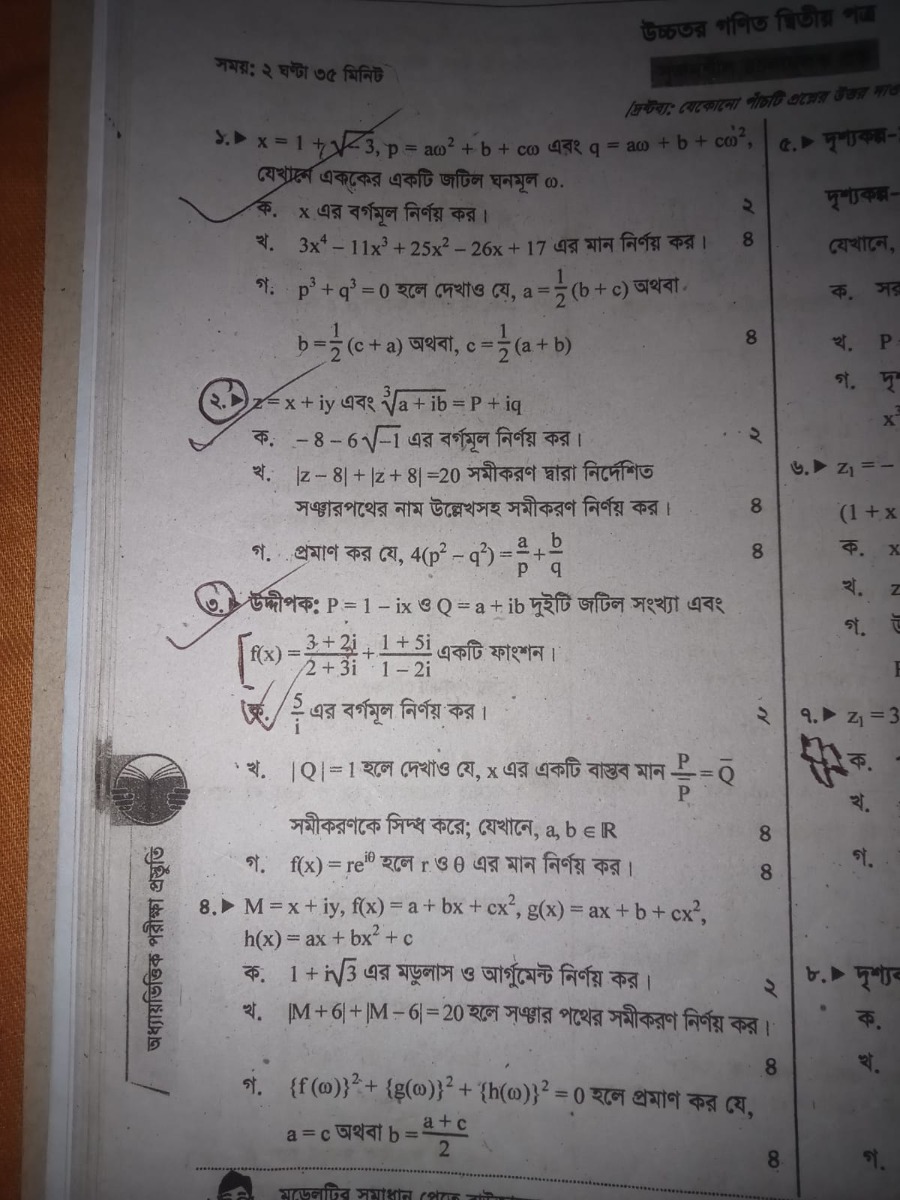 উচ্চতর গণিত দ্বিতীয় পত্র
সময়: ২ ঘণ্টা ৩৫ মিনিট
[দ্রষ্টব্য: যেকোনো পাঁচটি প্রশ্নের উত্তর দাও
১.▶ x = 1 + √-3, p = aω² + b + cω এবং q = aω + b + cω²,
যেখানে এককের একটি জটিল ঘনমূল ω.
ক. x এর বর্গমূল নির্ণয় কর। ২
খ. 3x⁴ – 11x³ + 25x² – 26x + 17 এর মান নির্ণয় কর। ৪
গ. p³ + q³ = 0 হলে দেখাও যে, a = 1/2 (b + c) অথবা
b = 1/2 (c + a) অথবা, c = 1/2 (a + b) ৪
২.▶ z = x + iy এবং ∛(a + ib) = P + iq
ক. – 8 – 6√-1 এর বর্গমূল নির্ণয় কর। ২
খ. |z – 8| + |z + 8| =20 সমীকরণ দ্বারা নির্দেশিত
সঞ্চারপথের নাম উল্লেখসহ সমীকরণ নির্ণয় কর। ৪
গ. প্রমাণ কর যে, 4(p² – q²) = a/p + b/q ৪
৩.▶ উদ্দীপক: P = 1 – ix ও Q = a + ib দুইটি জটিল সংখ্যা এবং
f(x) = (3 + 2i)/(2 + 3i) + (1 + 5i)/(1 – 2i) একটি ফাংশন।
ক. 5/i এর বর্গমূল নির্ণয় কর। ২
খ. |Q| = 1 হলে দেখাও যে, x এর একটি বাস্তব মান P/P̄ = Q̄
সমীকরণকে সিদ্ধ করে; যেখানে, a, b ∈ ℝ ৪
গ. f(x) = re^iθ হলে r ও θ এর মান নির্ণয় কর। ৪
৪.▶ M = x + iy, f(x) = a + bx + cx², g(x) = ax + b + cx²,
h(x) = ax + bx² + c
ক. 1 + i√3 এর মডুলাস ও আর্গুমেন্ট নির্ণয় কর। ২
খ. |M + 6| + |M – 6| = 20 হলে সঞ্চার পথের সমীকরণ নির্ণয় কর।
৪
গ. {f (ω)}² + {g(ω)}² + {h(ω)}² = 0 হলে প্রমাণ কর যে,
a = c অথবা b = (a + c)/2 ৪
অধ্যায়ভিত্তিক পরীক্ষা প্রস্তুতি
৫.▶ দৃশ্যকল্প-
দৃশ্যকল্প-
যেখানে,
ক.
খ. P
গ.
x³
৬.▶ z₁ = –
(1 + x
ক. x
খ. z
গ.
৭.▶ z₁ = 3
ক.
খ.
গ.
৮.▶
ক.
খ.
গ.